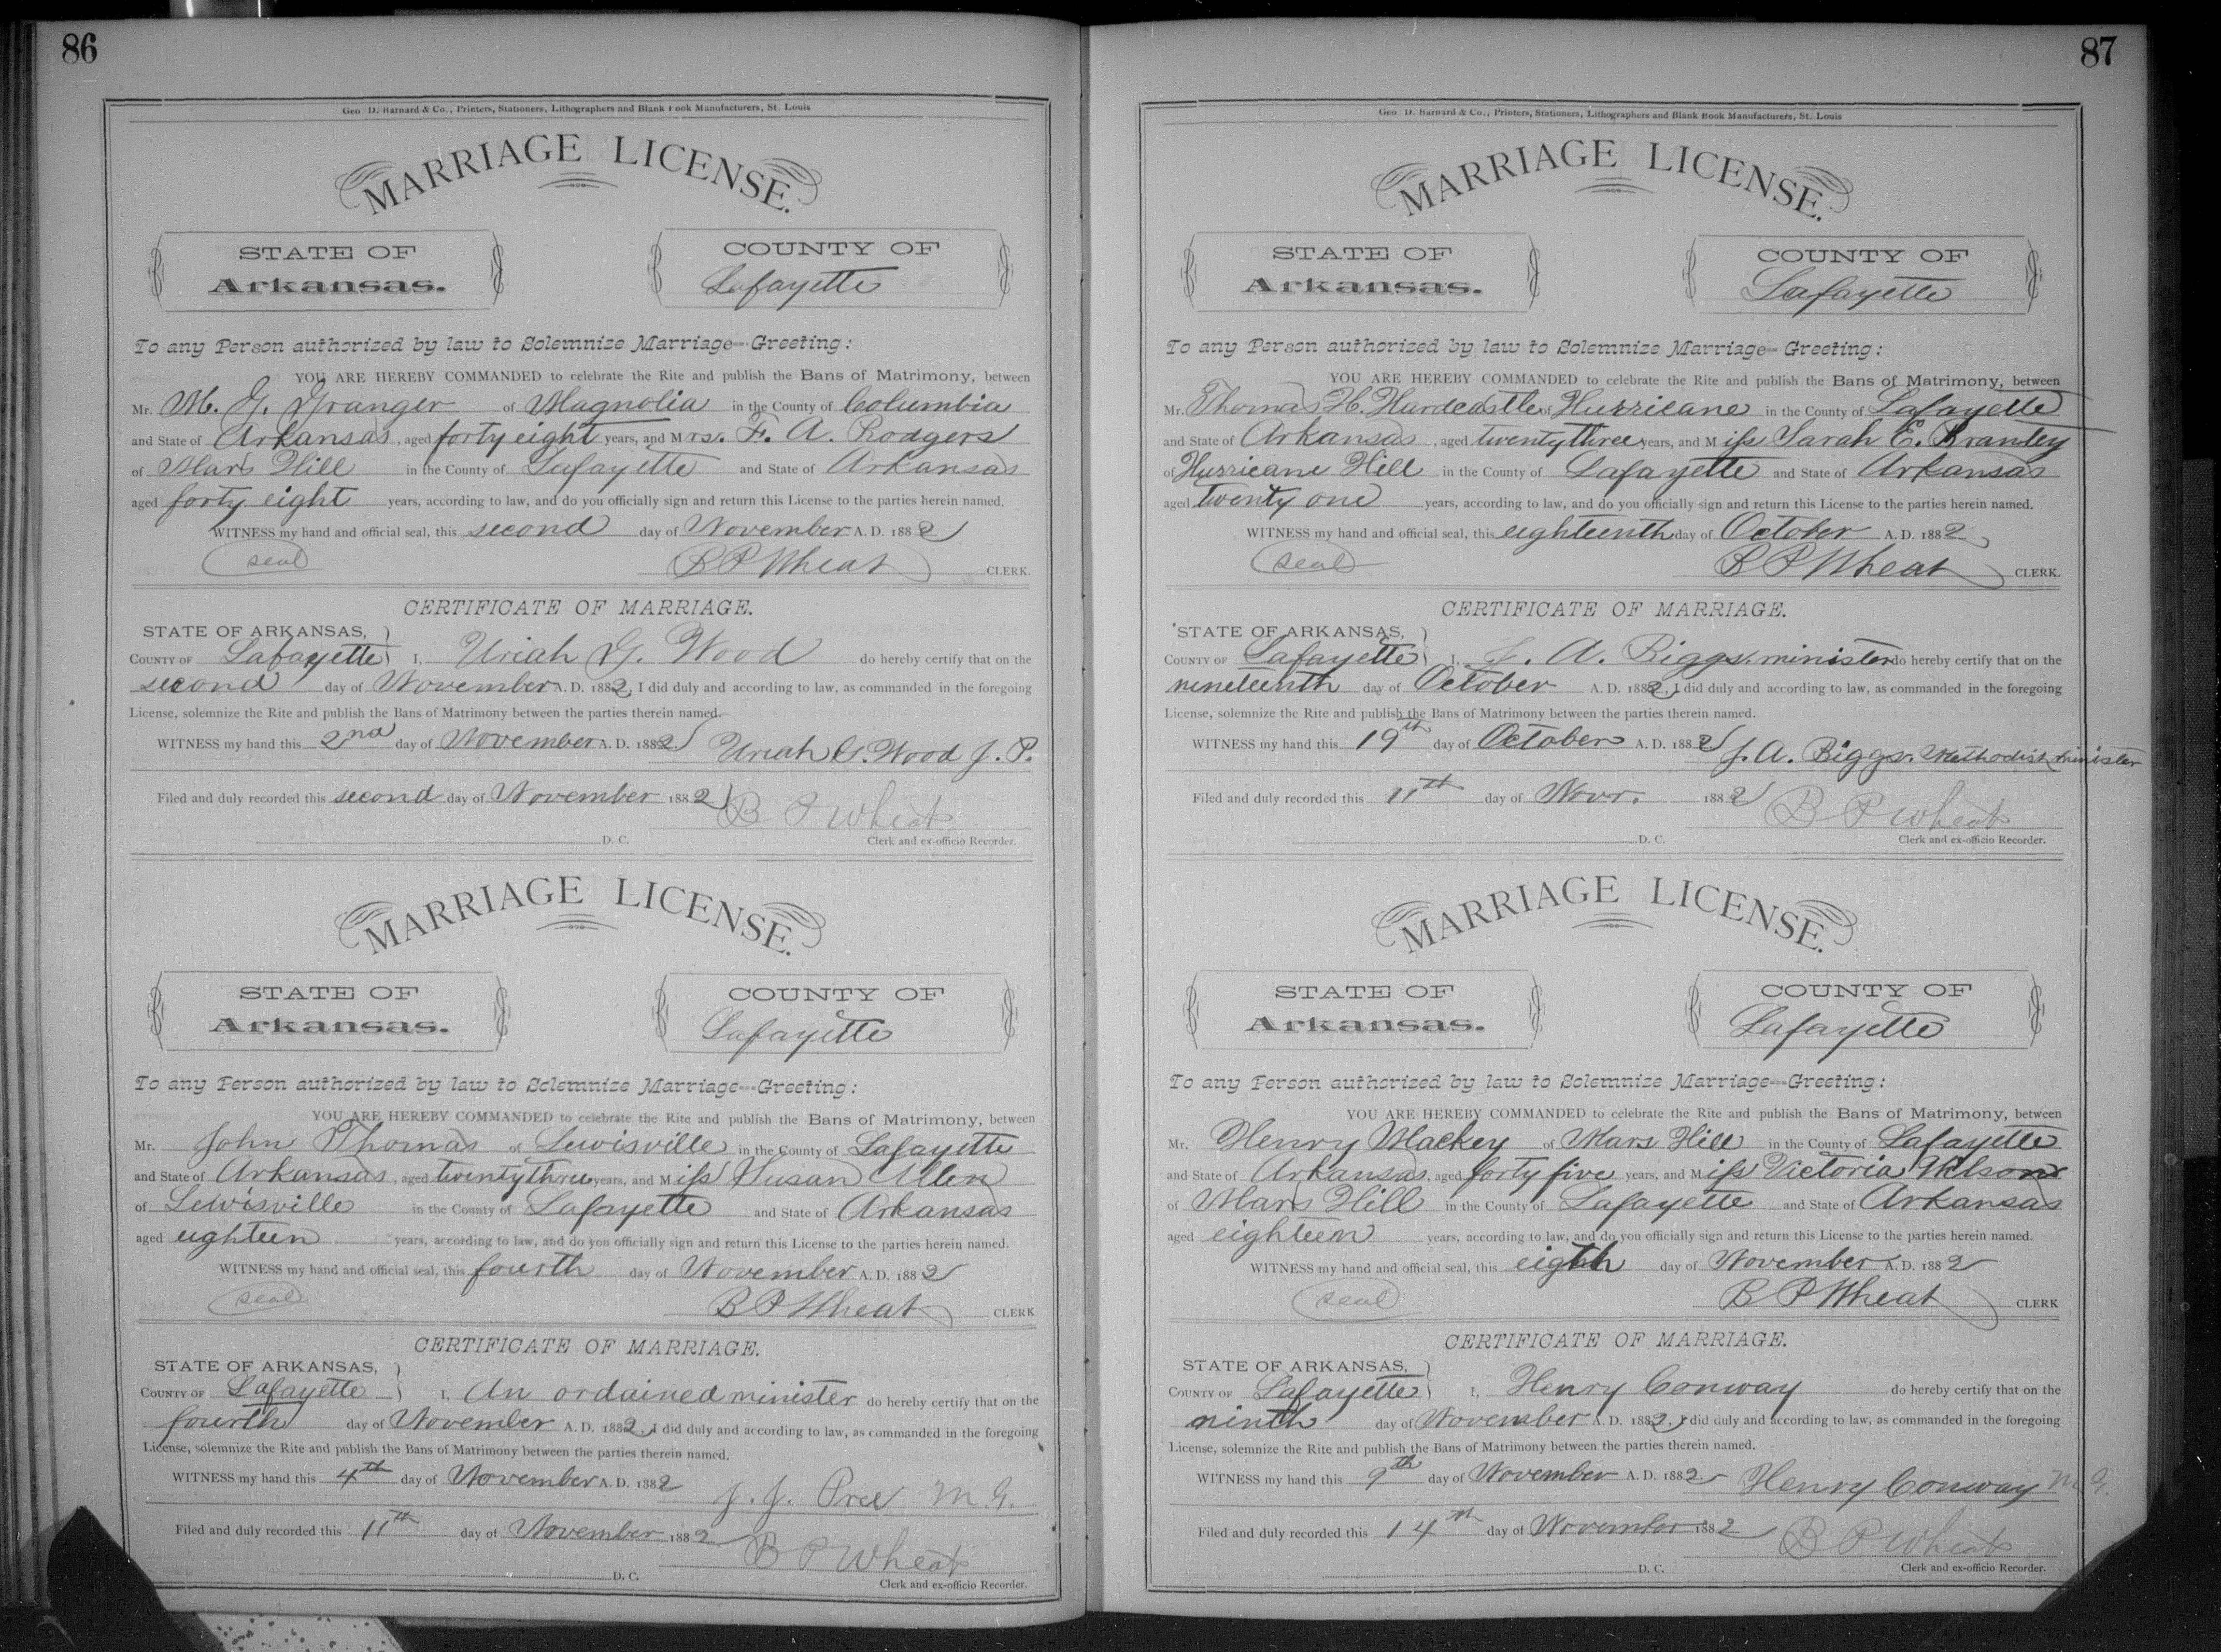 86
Geo D. Barnard & Co., Printers, Stationers, Lithographers and Blank Book Manufacturers, St. Louis
MARRIAGE LICENSE.
STATE OF Arkansas.
COUNTY OF Lafayette
To any Person authorized by law to Solemnize Marriage--Greeting:
YOU ARE HEREBY COMMANDED to celebrate the Rite and publish the Bans of Matrimony, between
Mr. M. G. Granger of Magnolia in the County of Columbia
and State of Arkansas, aged forty eight years, and Mrs. F. A. Rodgers
of Mars Hill in the County of Lafayette and State of Arkansas
aged forty eight years, according to law, and do you officially sign and return this License to the parties herein named.
WITNESS my hand and official seal, this second day of November A. D. 1882
seal B P Wheat CLERK.
CERTIFICATE OF MARRIAGE.
STATE OF ARKANSAS,
COUNTY OF Lafayette } I, Uriah G. Wood do hereby certify that on the
second day of November A. D. 1882, I did duly and according to law, as commanded in the foregoing
License, solemnize the Rite and publish the Bans of Matrimony between the parties therein named.
WITNESS my hand this 2nd day of November A. D. 1882 Uriah G. Wood J. P.
Filed and duly recorded this second day of November 1882 B P Wheat
D. C. Clerk and ex-officio Recorder.
MARRIAGE LICENSE.
STATE OF Arkansas.
COUNTY OF Lafayette
To any Person authorized by law to Solemnize Marriage--Greeting:
YOU ARE HEREBY COMMANDED to celebrate the Rite and publish the Bans of Matrimony, between
Mr. John Thomas of Lewisville in the County of Lafayette
and State of Arkansas, aged twenty three years, and Miss Susan Allen
of Lewisville in the County of Lafayette and State of Arkansas
aged eighteen years, according to law, and do you officially sign and return this License to the parties herein named.
WITNESS my hand and official seal, this fourth day of November A. D. 1882
seal B P Wheat CLERK
CERTIFICATE OF MARRIAGE.
STATE OF ARKANSAS,
COUNTY OF Lafayette } I, An ordained minister do hereby certify that on the
fourth day of November A. D. 1882, I did duly and according to law, as commanded in the foregoing
License, solemnize the Rite and publish the Bans of Matrimony between the parties therein named.
WITNESS my hand this 4th day of November A. D. 1882 J. J. M. G.
Filed and duly recorded this 11th day of November 1882 B P Wheat
D. C. Clerk and ex-officio Recorder.
87
Geo D. Barnard & Co., Printers, Stationers, Lithographers and Blank Book Manufacturers, St. Louis
MARRIAGE LICENSE.
STATE OF Arkansas.
COUNTY OF Lafayette
To any Person authorized by law to Solemnize Marriage--Greeting:
YOU ARE HEREBY COMMANDED to celebrate the Rite and publish the Bans of Matrimony, between
Mr. Thomas H. Hardcastle of Hurricane in the County of Lafayette
and State of Arkansas, aged twenty three years, and Miss Sarah E. Branley
of Hurricane Hill in the County of Lafayette and State of Arkansas
aged twenty one years, according to law, and do you officially sign and return this License to the parties herein named.
WITNESS my hand and official seal, this eighteenth day of October A. D. 1882
seal B P Wheat CLERK.
CERTIFICATE OF MARRIAGE.
STATE OF ARKANSAS,
COUNTY OF Lafayette } I, J. A. Biggs. minister do hereby certify that on the
nineteenth day of October A. D. 1882, I did duly and according to law, as commanded in the foregoing
License, solemnize the Rite and publish the Bans of Matrimony between the parties therein named.
WITNESS my hand this 19th day of October A. D. 1882 J. A. Biggs. Methodist minister
Filed and duly recorded this 11th day of Novr. 1882 B P Wheat
D. C. Clerk and ex-officio Recorder.
MARRIAGE LICENSE.
STATE OF Arkansas.
COUNTY OF Lafayette
To any Person authorized by law to Solemnize Marriage--Greeting:
YOU ARE HEREBY COMMANDED to celebrate the Rite and publish the Bans of Matrimony, between
Mr. Henry Mackey of Mars Hill in the County of Lafayette
and State of Arkansas, aged forty five years, and Miss Victoria Wilson
of Mars Hill in the County of Lafayette and State of Arkansas
aged eighteen years, according to law, and do you officially sign and return this License to the parties herein named.
WITNESS my hand and official seal, this eigth day of November A. D. 1882
seal B P Wheat CLERK
CERTIFICATE OF MARRIAGE.
STATE OF ARKANSAS,
COUNTY OF Lafayette } I, Henry Conway do hereby certify that on the
ninth day of November A. D. 1882, I did duly and according to law, as commanded in the foregoing
License, solemnize the Rite and publish the Bans of Matrimony between the parties therein named.
WITNESS my hand this 9th day of November A. D. 1882 Henry Conway M. G.
Filed and duly recorded this 14th day of November 1882 B P Wheat
D. C. Clerk and ex-officio Recorder.